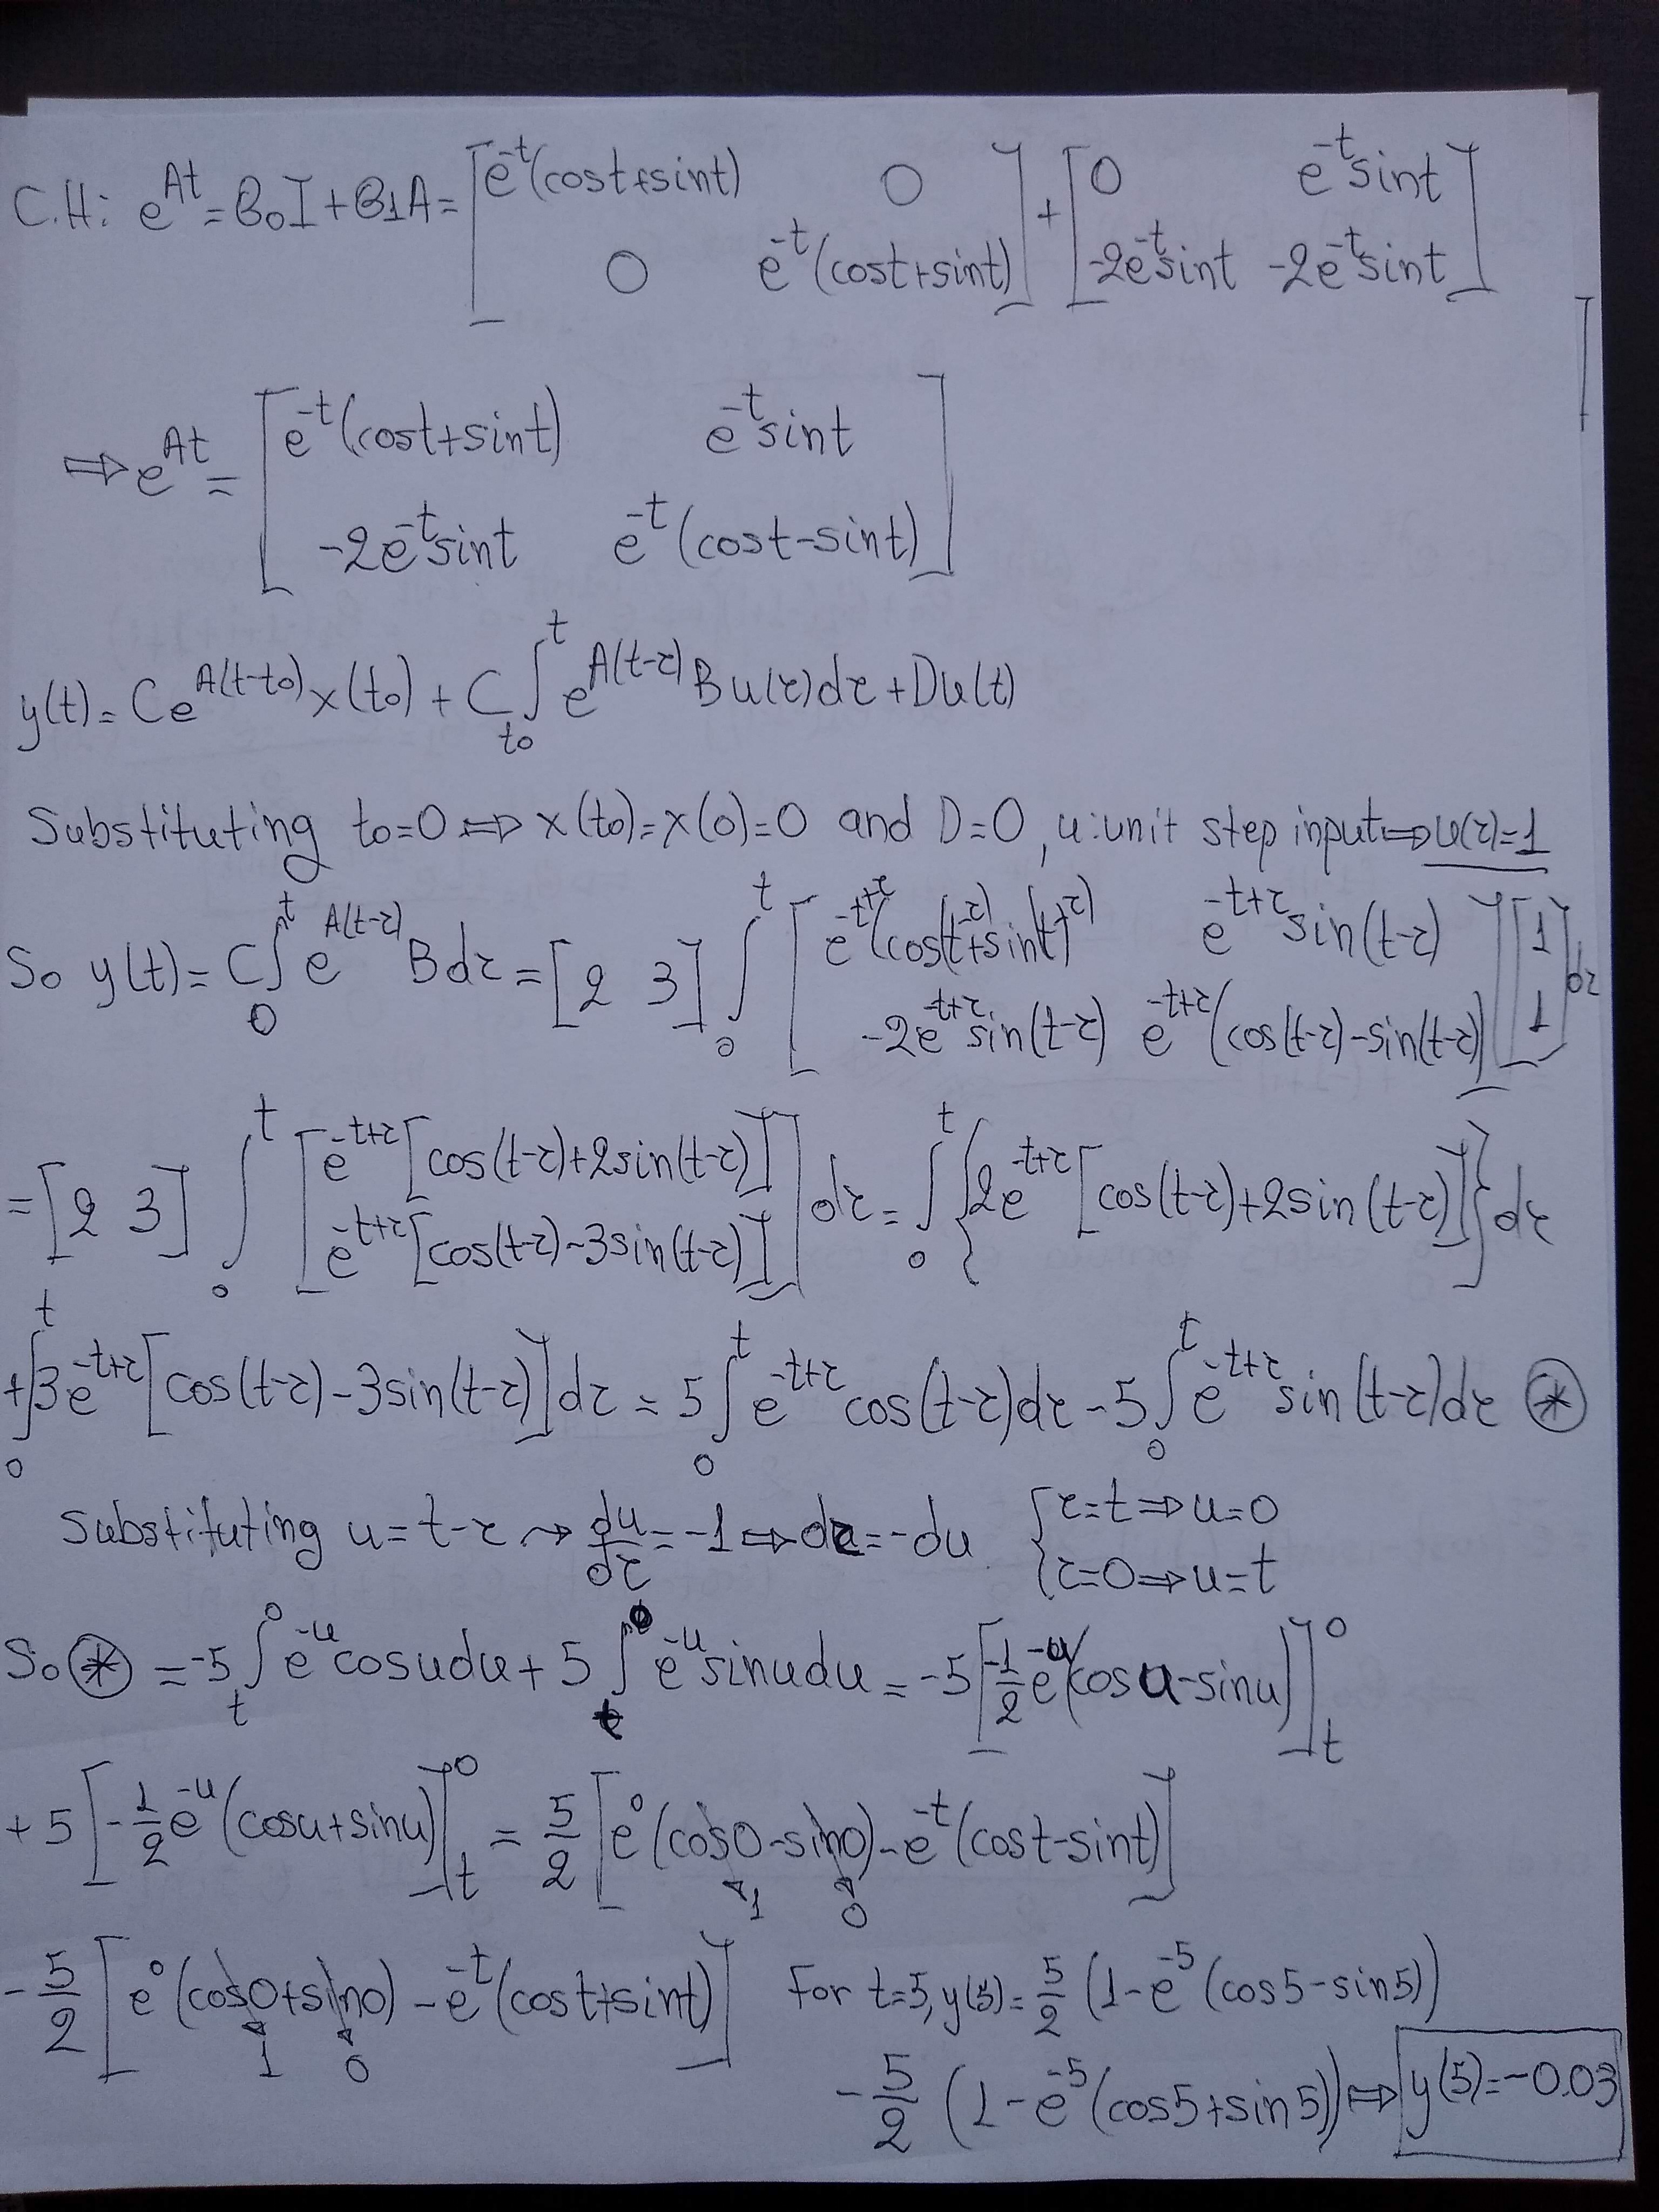 C.H: e^{At} = β₀I + β₁A = [e^{-t}(cost+sint) 0; 0 e^{-t}(cost+sint)] + [0 e^{-t}sint; -2e^{-t}sint -2e^{-t}sint]
⇒ e^{At} = [e^{-t}(cost+sint) e^{-t}sint; -2e^{-t}sint e^{-t}(cost-sint)]
y(t) = Ce^{A(t-t₀)}x(t₀) + C∫_{t₀}^{t} e^{A(t-τ)}Bu(τ)dτ + Du(t)
Substituting t₀=0 ⇒ x(t₀)=x(0)=0 and D=0, u:unit step input ⇒ u(τ)=1
So y(t) = C∫_0^t e^{A(t-τ)}Bdτ = [2 3] ∫_0^t [e^{-t+τ}(cos(t-τ)+sin(t-τ)) e^{-t+τ}sin(t-τ); -2e^{-t+τ}sin(t-τ) e^{-t+τ}(cos(t-τ)-sin(t-τ)] [1; 1] dτ
= [2 3] ∫_0^t [e^{-t+τ}[cos(t-τ)+2sin(t-τ)]; e^{-t+τ}[cos(t-τ)-3sin(t-τ)]] dτ = ∫_0^t {2e^{-t+τ}[cos(t-τ)+2sin(t-τ)]}dτ
+∫_0^t 3e^{-t+τ}[cos(t-τ)-3sin(t-τ)]dτ = 5∫_0^t e^{-t+τ}cos(t-τ)dτ - 5∫_0^t e^{-t+τ}sin(t-τ)dτ ⊛
Substituting u=t-τ → du/dτ = -1 ⇒ dτ=-du {τ=t ⇒ u=0; τ=0 ⇒ u=t
So ⊛ = -5∫_t^0 e^{-u}cosudu + 5∫_t^0 e^{-u}sinudu = -5[-1/2 e^{-u}(cosu-sinu)]_t^0
+ 5[-1/2 e^{-u}(cosu+sinu)]_t^0 = 5/2 [e^0(cos0-sin0) - e^{-t}(cost-sint)]
1 0
- 5/2 [e^0(cos0+sin0) - e^{-t}(cost+sint)] For t=5, y(5) = 5/2 (1-e^{-5}(cos5-sin5))
1 0
- 5/2 (1-e^{-5}(cos5+sin5)) ⇒ y(5)=-0.03